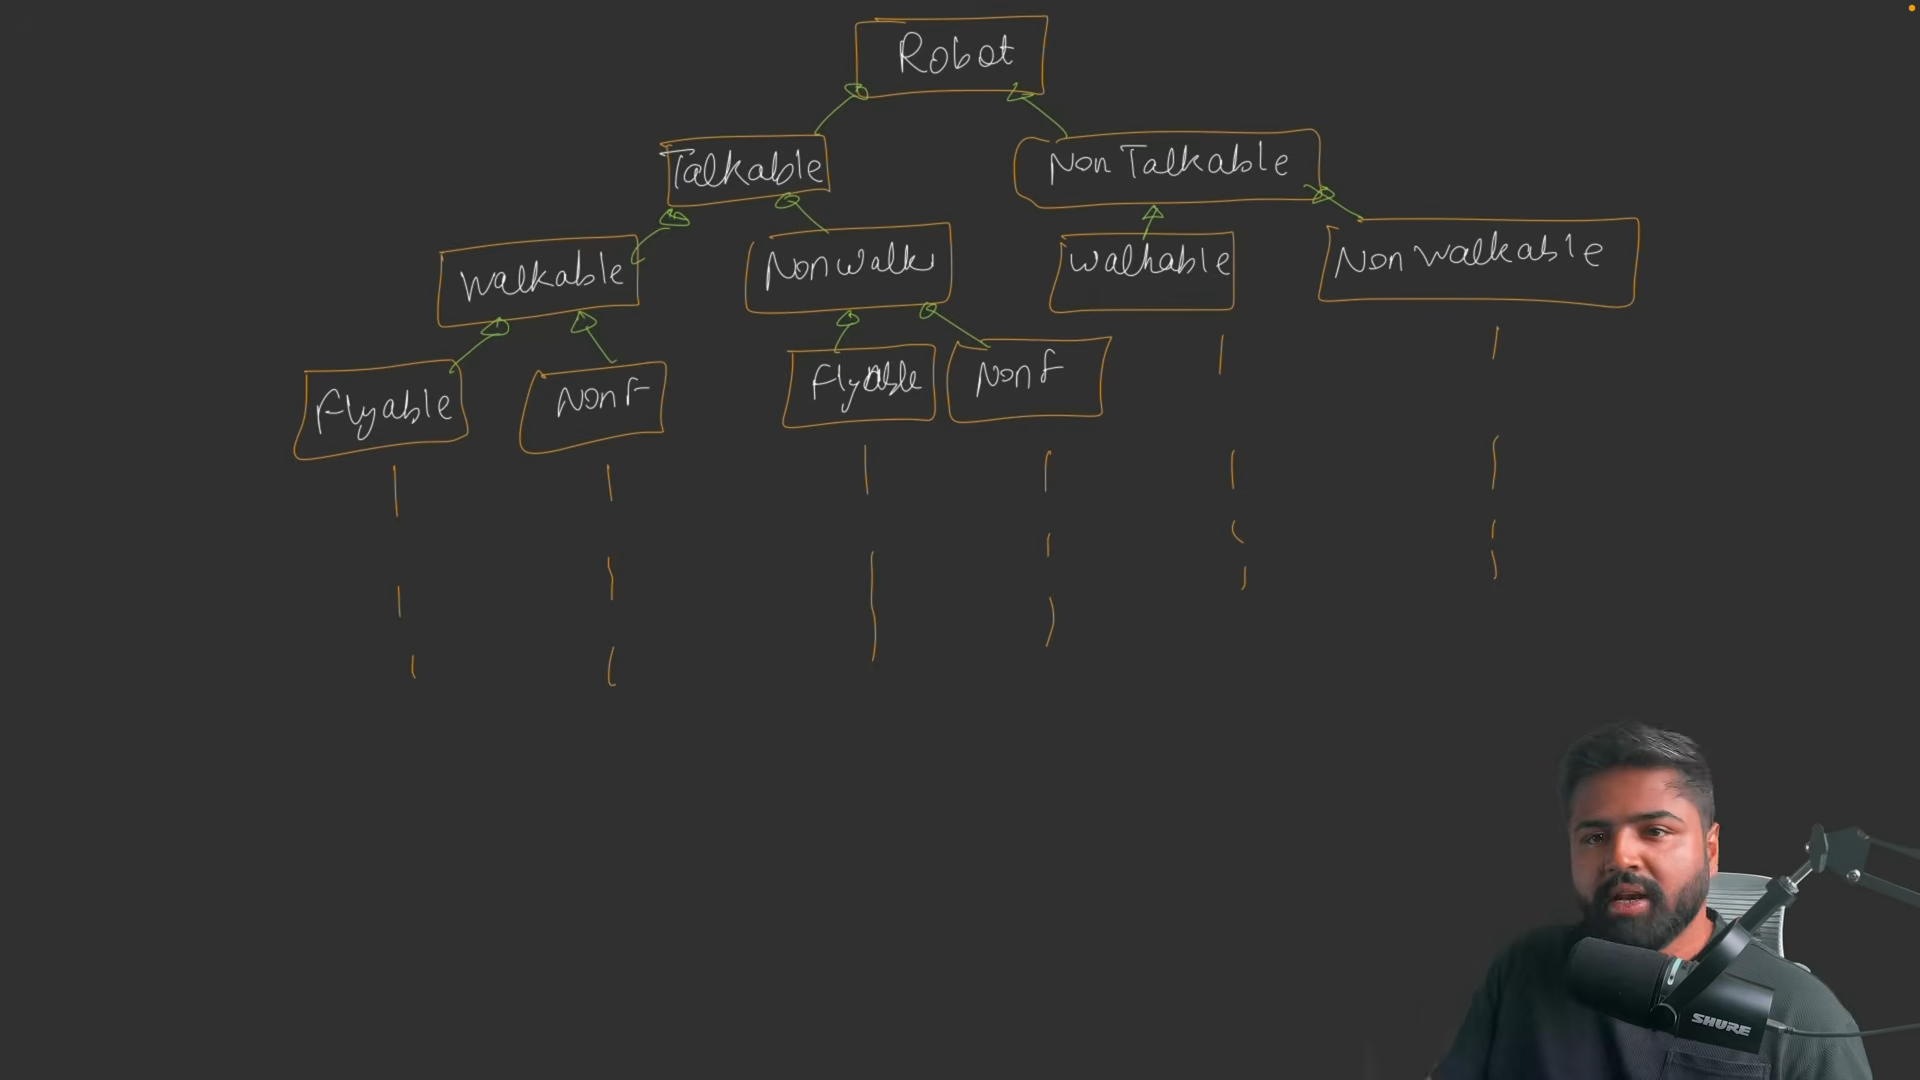 Robot
Talkable
Non Talkable
Walkable
Non Walk
Walkable
Non Walkable
Flyable
Non F
Flyable
Non F
SHURE